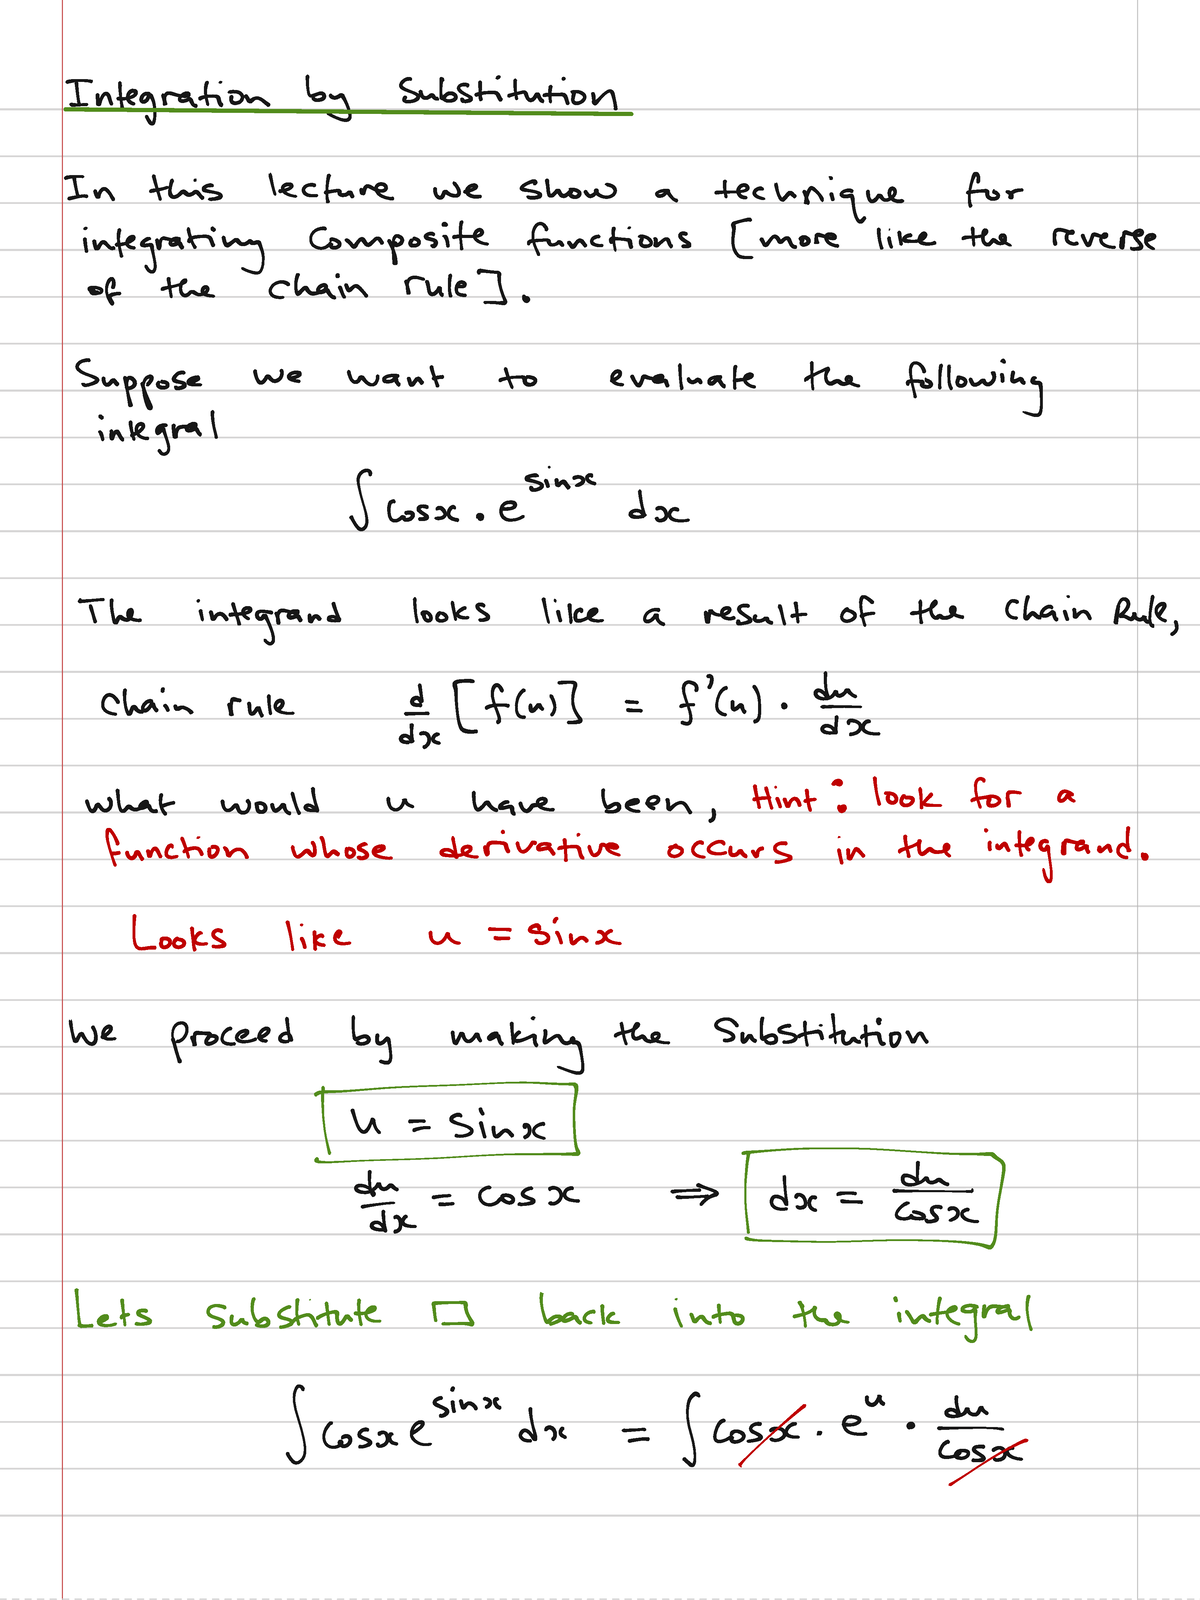 Integration by Substitution
In this lecture we show a technique for
integrating Composite functions [more like the reverse
of the chain rule].
Suppose we want to evaluate the following
integral
∫ cosx . e^{sinx} dx
The integrand looks like a result of the Chain Rule,
Chain rule d/dx [f(u)] = f'(u) . du/dx
what would u have been, Hint: look for a
function whose derivative occurs in the integrand.
Looks like u = sinx
We proceed by making the Substitution
u = sinx
du/dx = cosx ⇒ dx = du/cosx
Lets substitute □ back into the integral
∫ cosx e^{sinx} dx = ∫ cosx . e^u . du/cosx